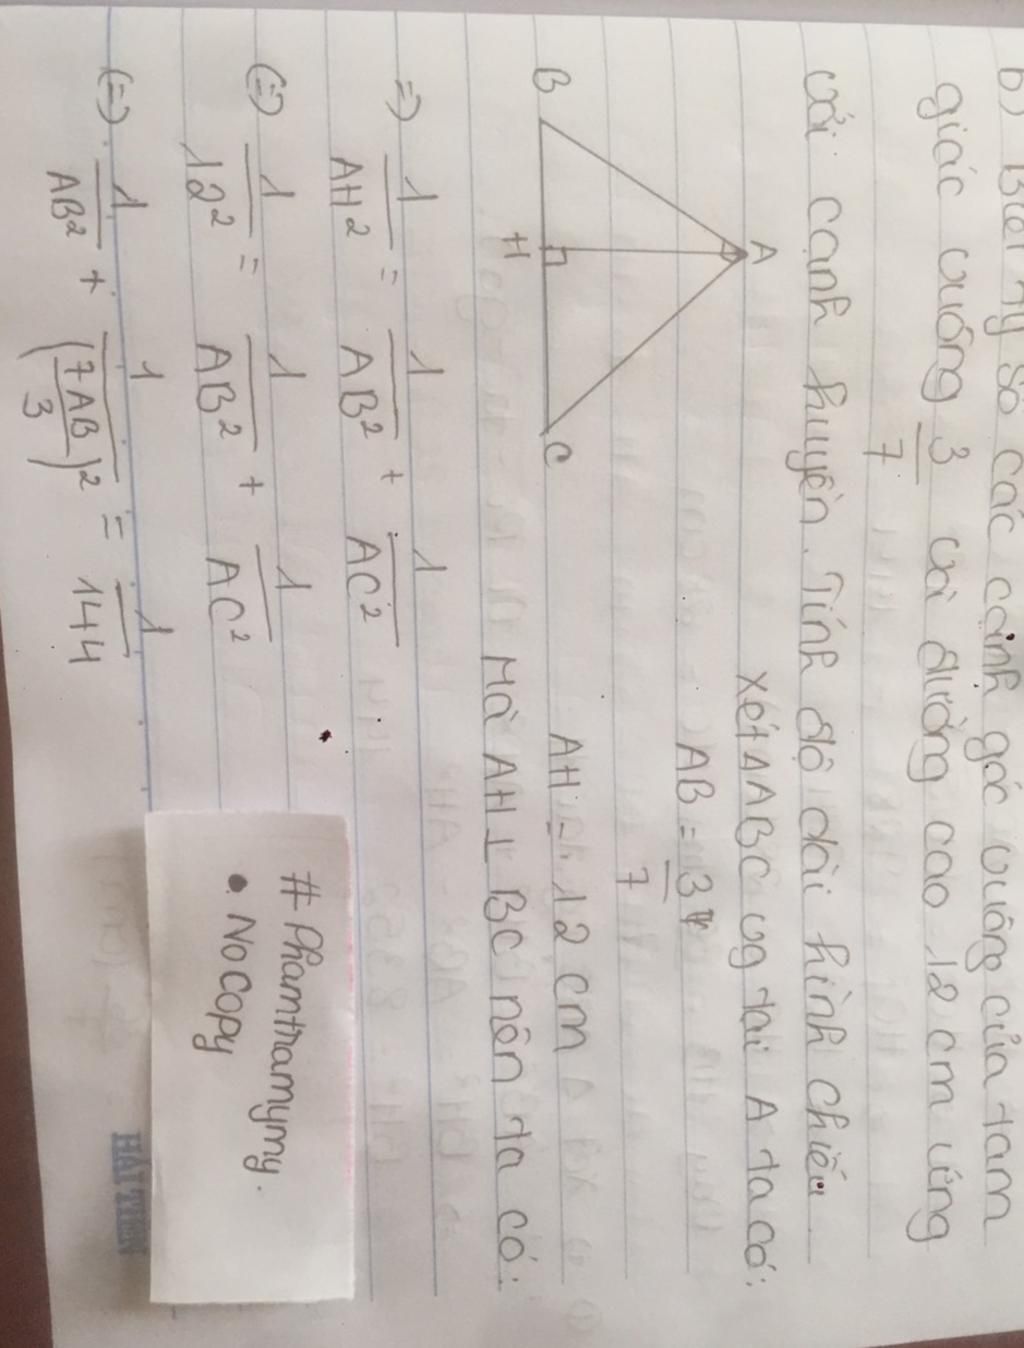 b) Biết tỷ số các cạnh góc vuông của tam
giác vuông 3/7 với đường cao 12 cm ứng
với cạnh huyền. Tính độ dài hình chiếu
A
B
H
C
Xét ΔABC vg tại A ta có:
AB = 3/7
AH = 12 cm
Mà AH ⊥ BC nên ta có:
=) 1/AH² = 1/AB² + 1/AC²
(=) 1/12² = 1/AB² + 1/AC²
(=) 1/AB² + 1/(7AB/3)² = 1/144
# Phamthamymy.
• No Copy
HẢI TIẾN